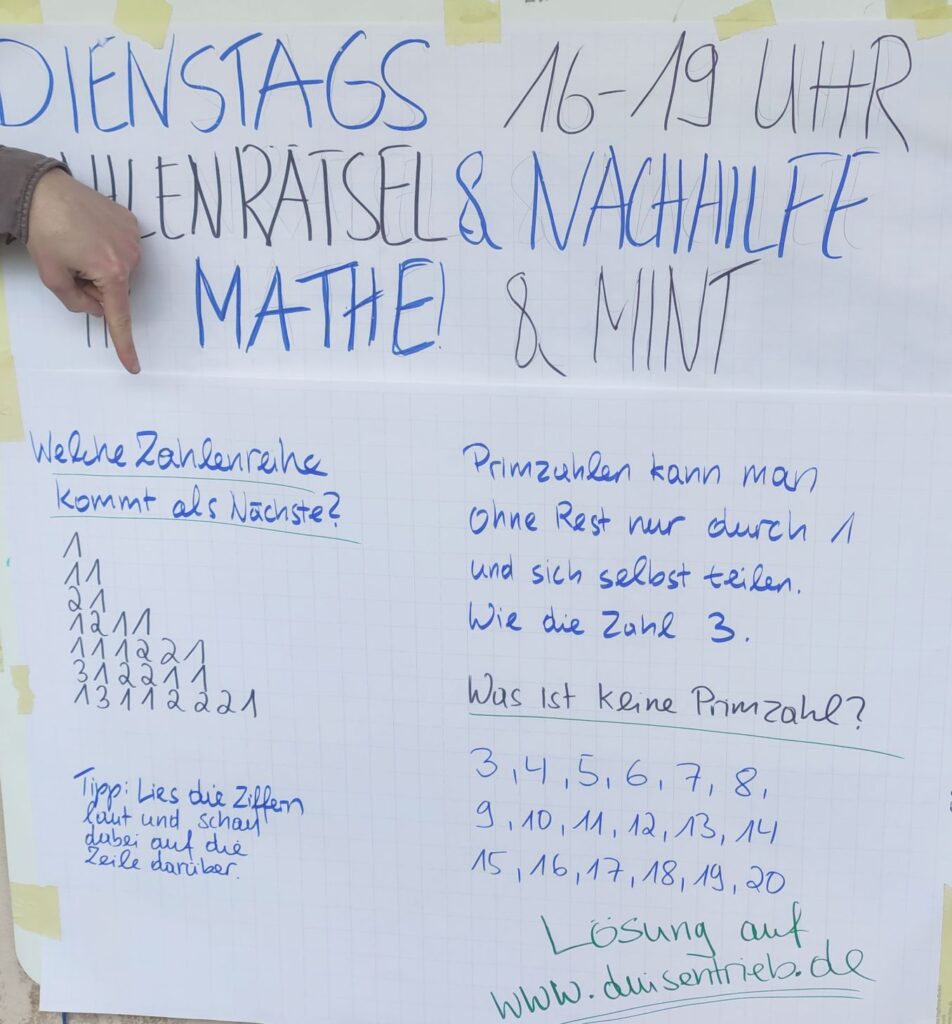 DIENSTAGS 16-19 UHR
HLENRÄTSEL & NACHHILFE
MATHE! & MINT
Welche Zahlenreihe
kommt als Nächste?
1
11
21
1211
111221
312211
13112221
Tipp: Lies die Ziffern
laut und schau
dabei auf die
Zeile darüber.
Primzahlen kann man
ohne Rest nur durch 1
und sich selbst teilen.
Wie die Zahl 3.
Was ist keine Primzahl?
3, 4, 5, 6, 7, 8,
9, 10, 11, 12, 13, 14
15, 16, 17, 18, 19, 20
Lösung auf
www.duisentrieb.de